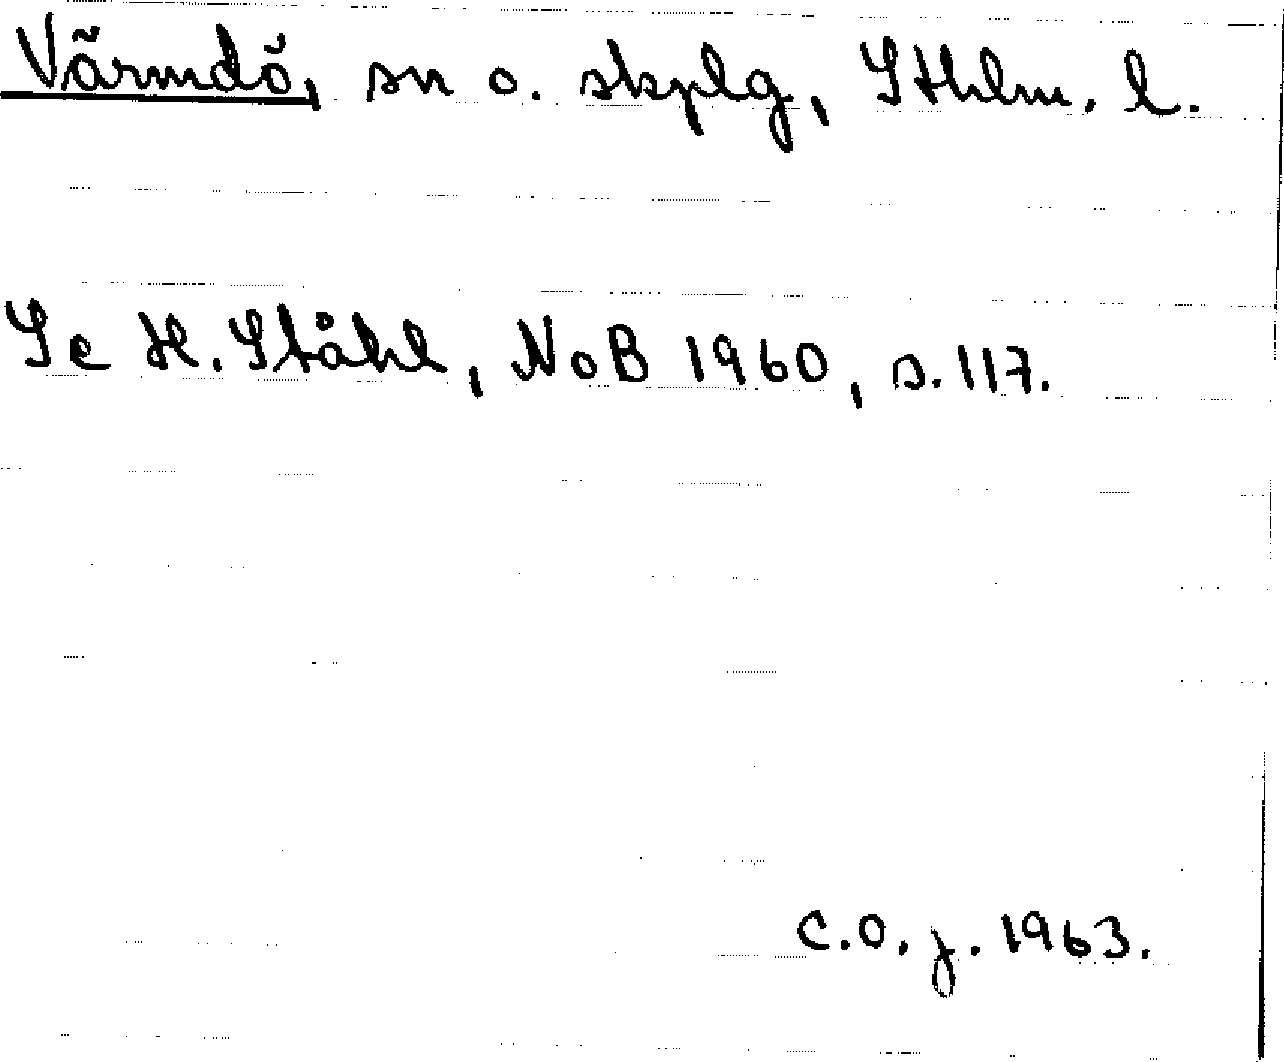 Värmdö, sn o. skplg, Sthlm. l.
Se H. Ståhl, NoB 1960, s. 117.
C.O. j. 1963.